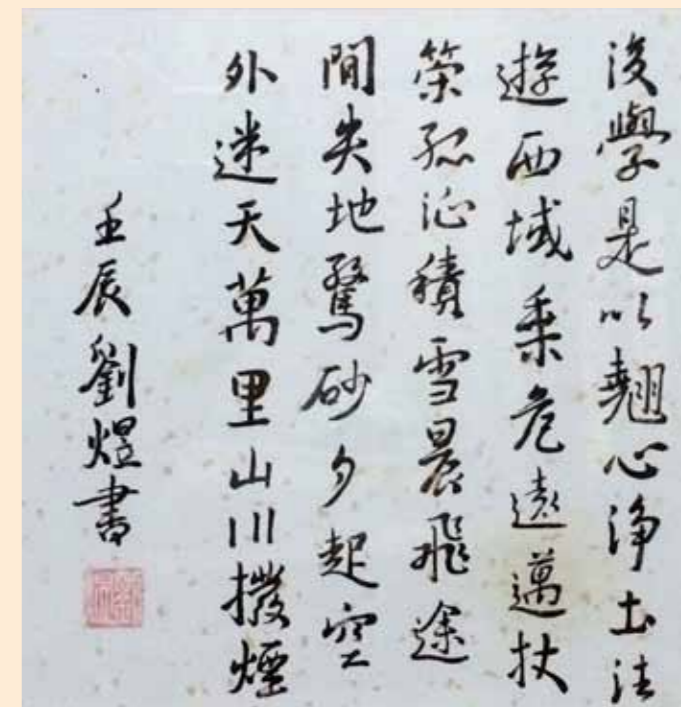 後學是以翹心淨土法
遊西域乗危遠邁杖
策孤征積雪晨飛途
間失地驚砂夕起空
外迷天萬里山川撥煙
壬辰劉煜書